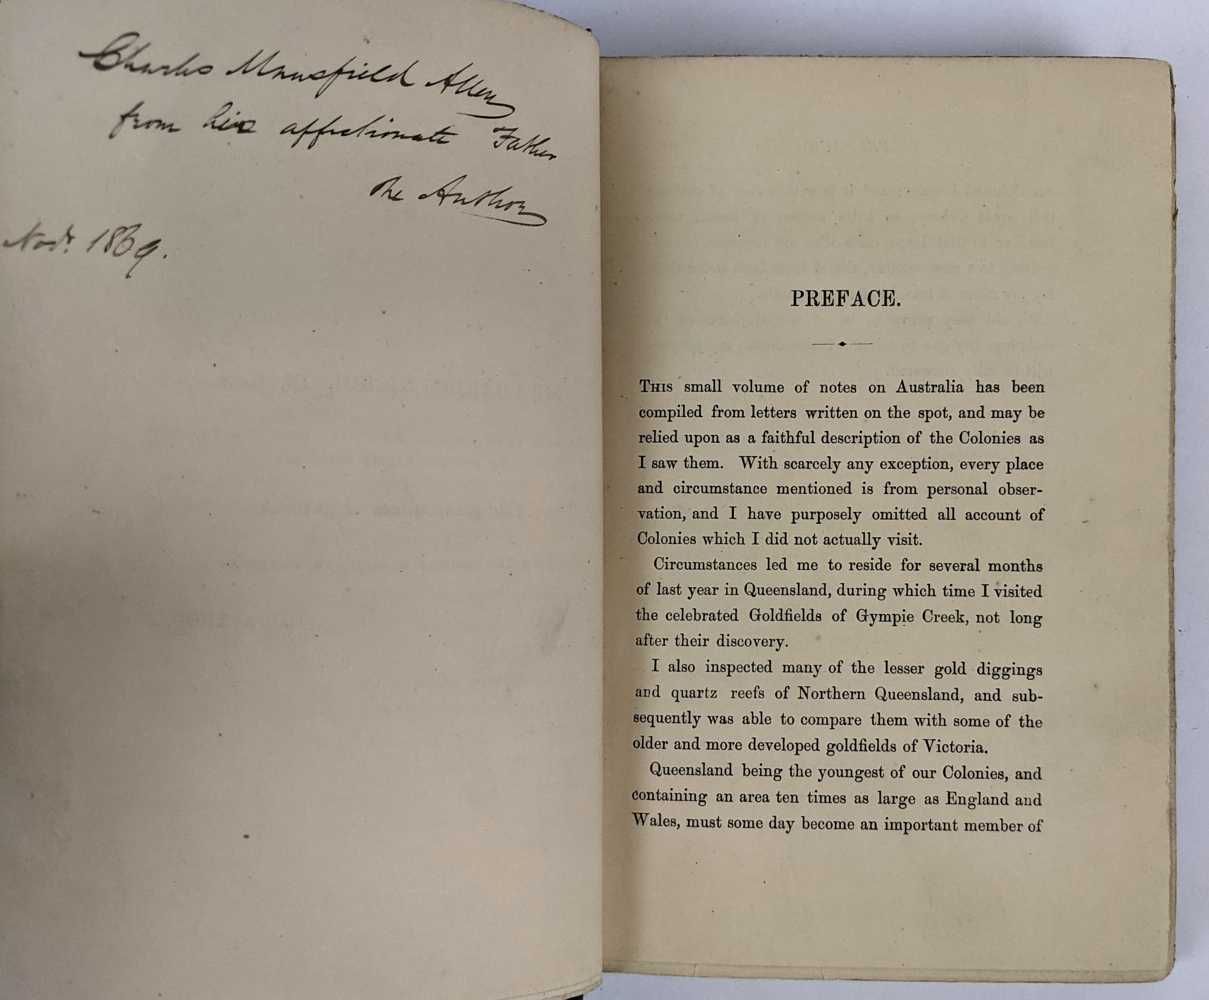 Charles Mansfield Allen
from his affectionate Father
The Author
Novr. 1869.
PREFACE.
THIS small volume of notes on Australia has been
compiled from letters written on the spot, and may be
relied upon as a faithful description of the Colonies as
I saw them. With scarcely any exception, every place
and circumstance mentioned is from personal obser-
vation, and I have purposely omitted all account of
Colonies which I did not actually visit.
Circumstances led me to reside for several months
of last year in Queensland, during which time I visited
the celebrated Goldfields of Gympie Creek, not long
after their discovery.
I also inspected many of the lesser gold diggings
and quartz reefs of Northern Queensland, and sub-
sequently was able to compare them with some of the
older and more developed goldfields of Victoria.
Queensland being the youngest of our Colonies, and
containing an area ten times as large as England and
Wales, must some day become an important member of